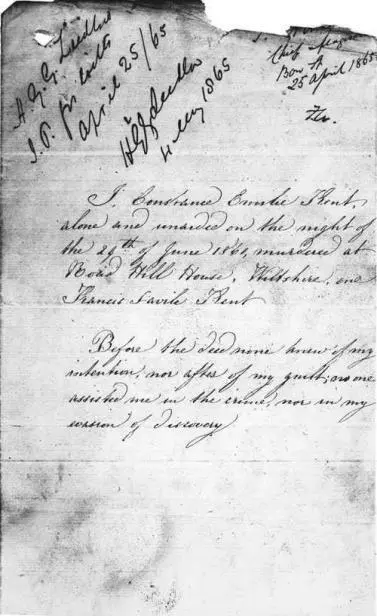 H. G. G. Ludlow
J. P. for Wilts
April 25/65
HGG Ludlow
4 May 1865
Chief Magis
Bow St
25 April 1865
I, Constance Emilie Kent,
alone and unaided on the night of
the 29th of June 1860, murdered at
Road Hill House, Wiltshire, one
Francis Savile Kent
Before the deed none knew of my
intention, nor after of my guilt; no one
assisted me in the crime, nor in my
evasion of discovery